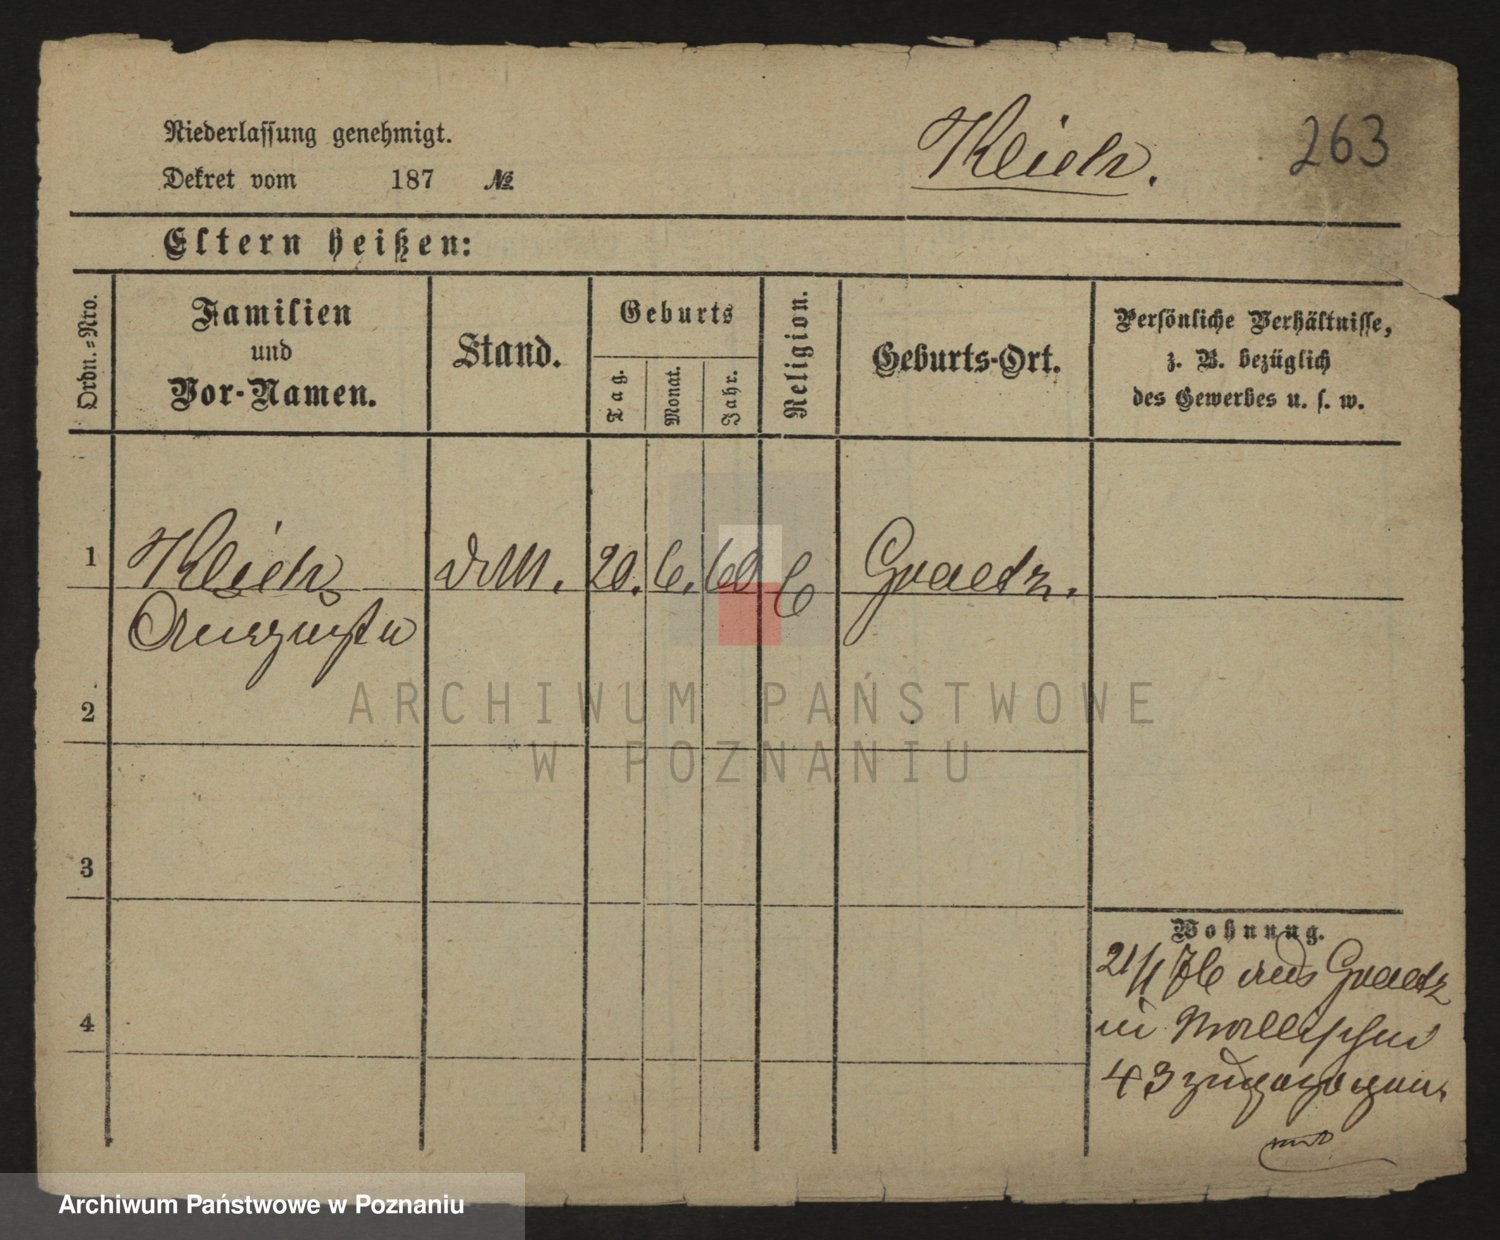 Niederlassung genehmigt.
Dekret vom 187 №
Kleich.
263
Eltern heißen:
Ordn.-Nro.
Familien
und
Vor-Namen.
Stand.
Geburts
Tag.
Monat.
Jahr.
Religion.
Geburts-Ort.
Persönliche Verhältnisse,
z. B. bezüglich
des Gewerbes u. s. w.
1
Kleich
20. 6. 60
Graetz.
Auguste
2
ARCHIWUM PAŃSTWOWE
W POZNANIU
3
Wohnung.
21/1 76 aus Graetz
in Wallischei
43 zugezogen
4
Archiwum Państwowe w Poznaniu